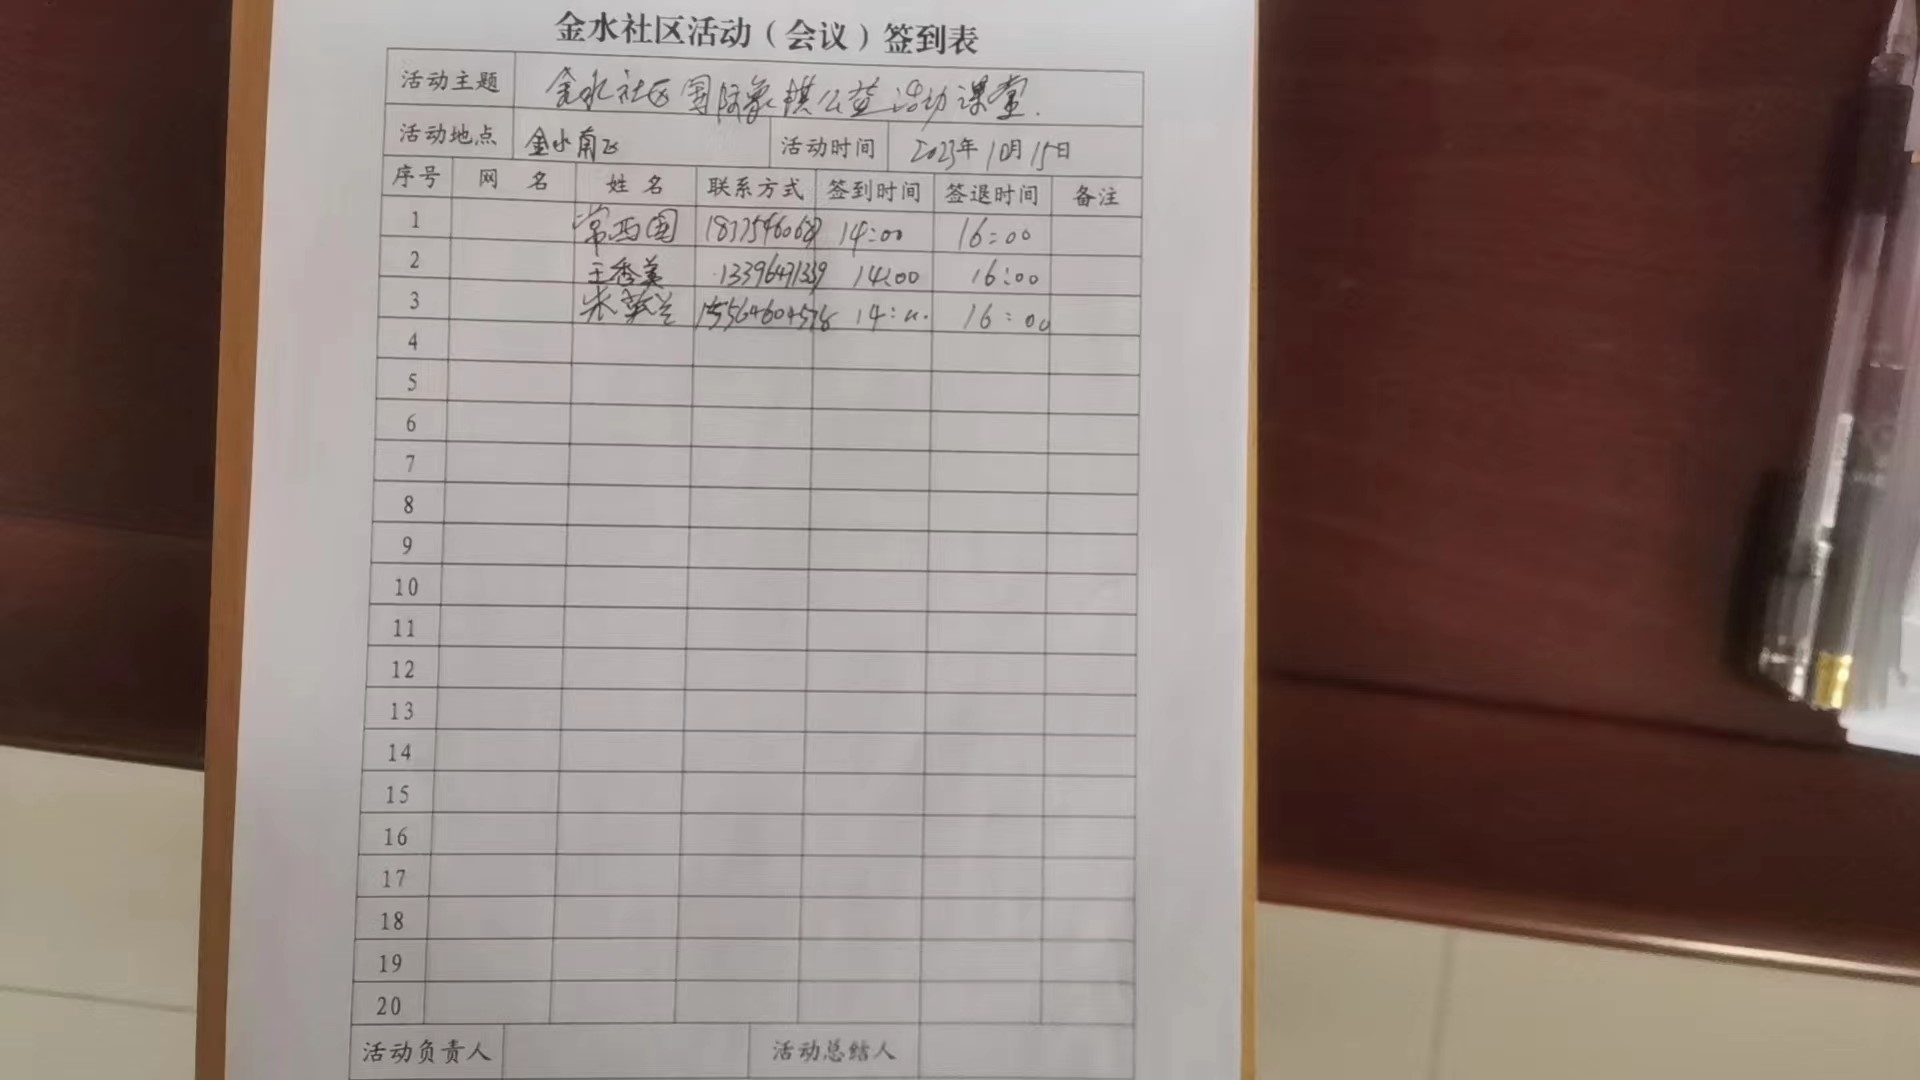 金水社区活动（会议）签到表
活动主题 金水社区国际象棋公益活动课堂.
活动地点 金水南区 活动时间 2023年10月15日
序号 网 名 姓 名 联系方式 签到时间 签退时间 备注
1 常西国 14:00 16:00
2 王秀美 13396471339 14:00 16:00
3 14: 16:00
4
5
6
7
8
9
10
11
12
13
14
15
16
17
18
19
20
活动负责人 活动总结人